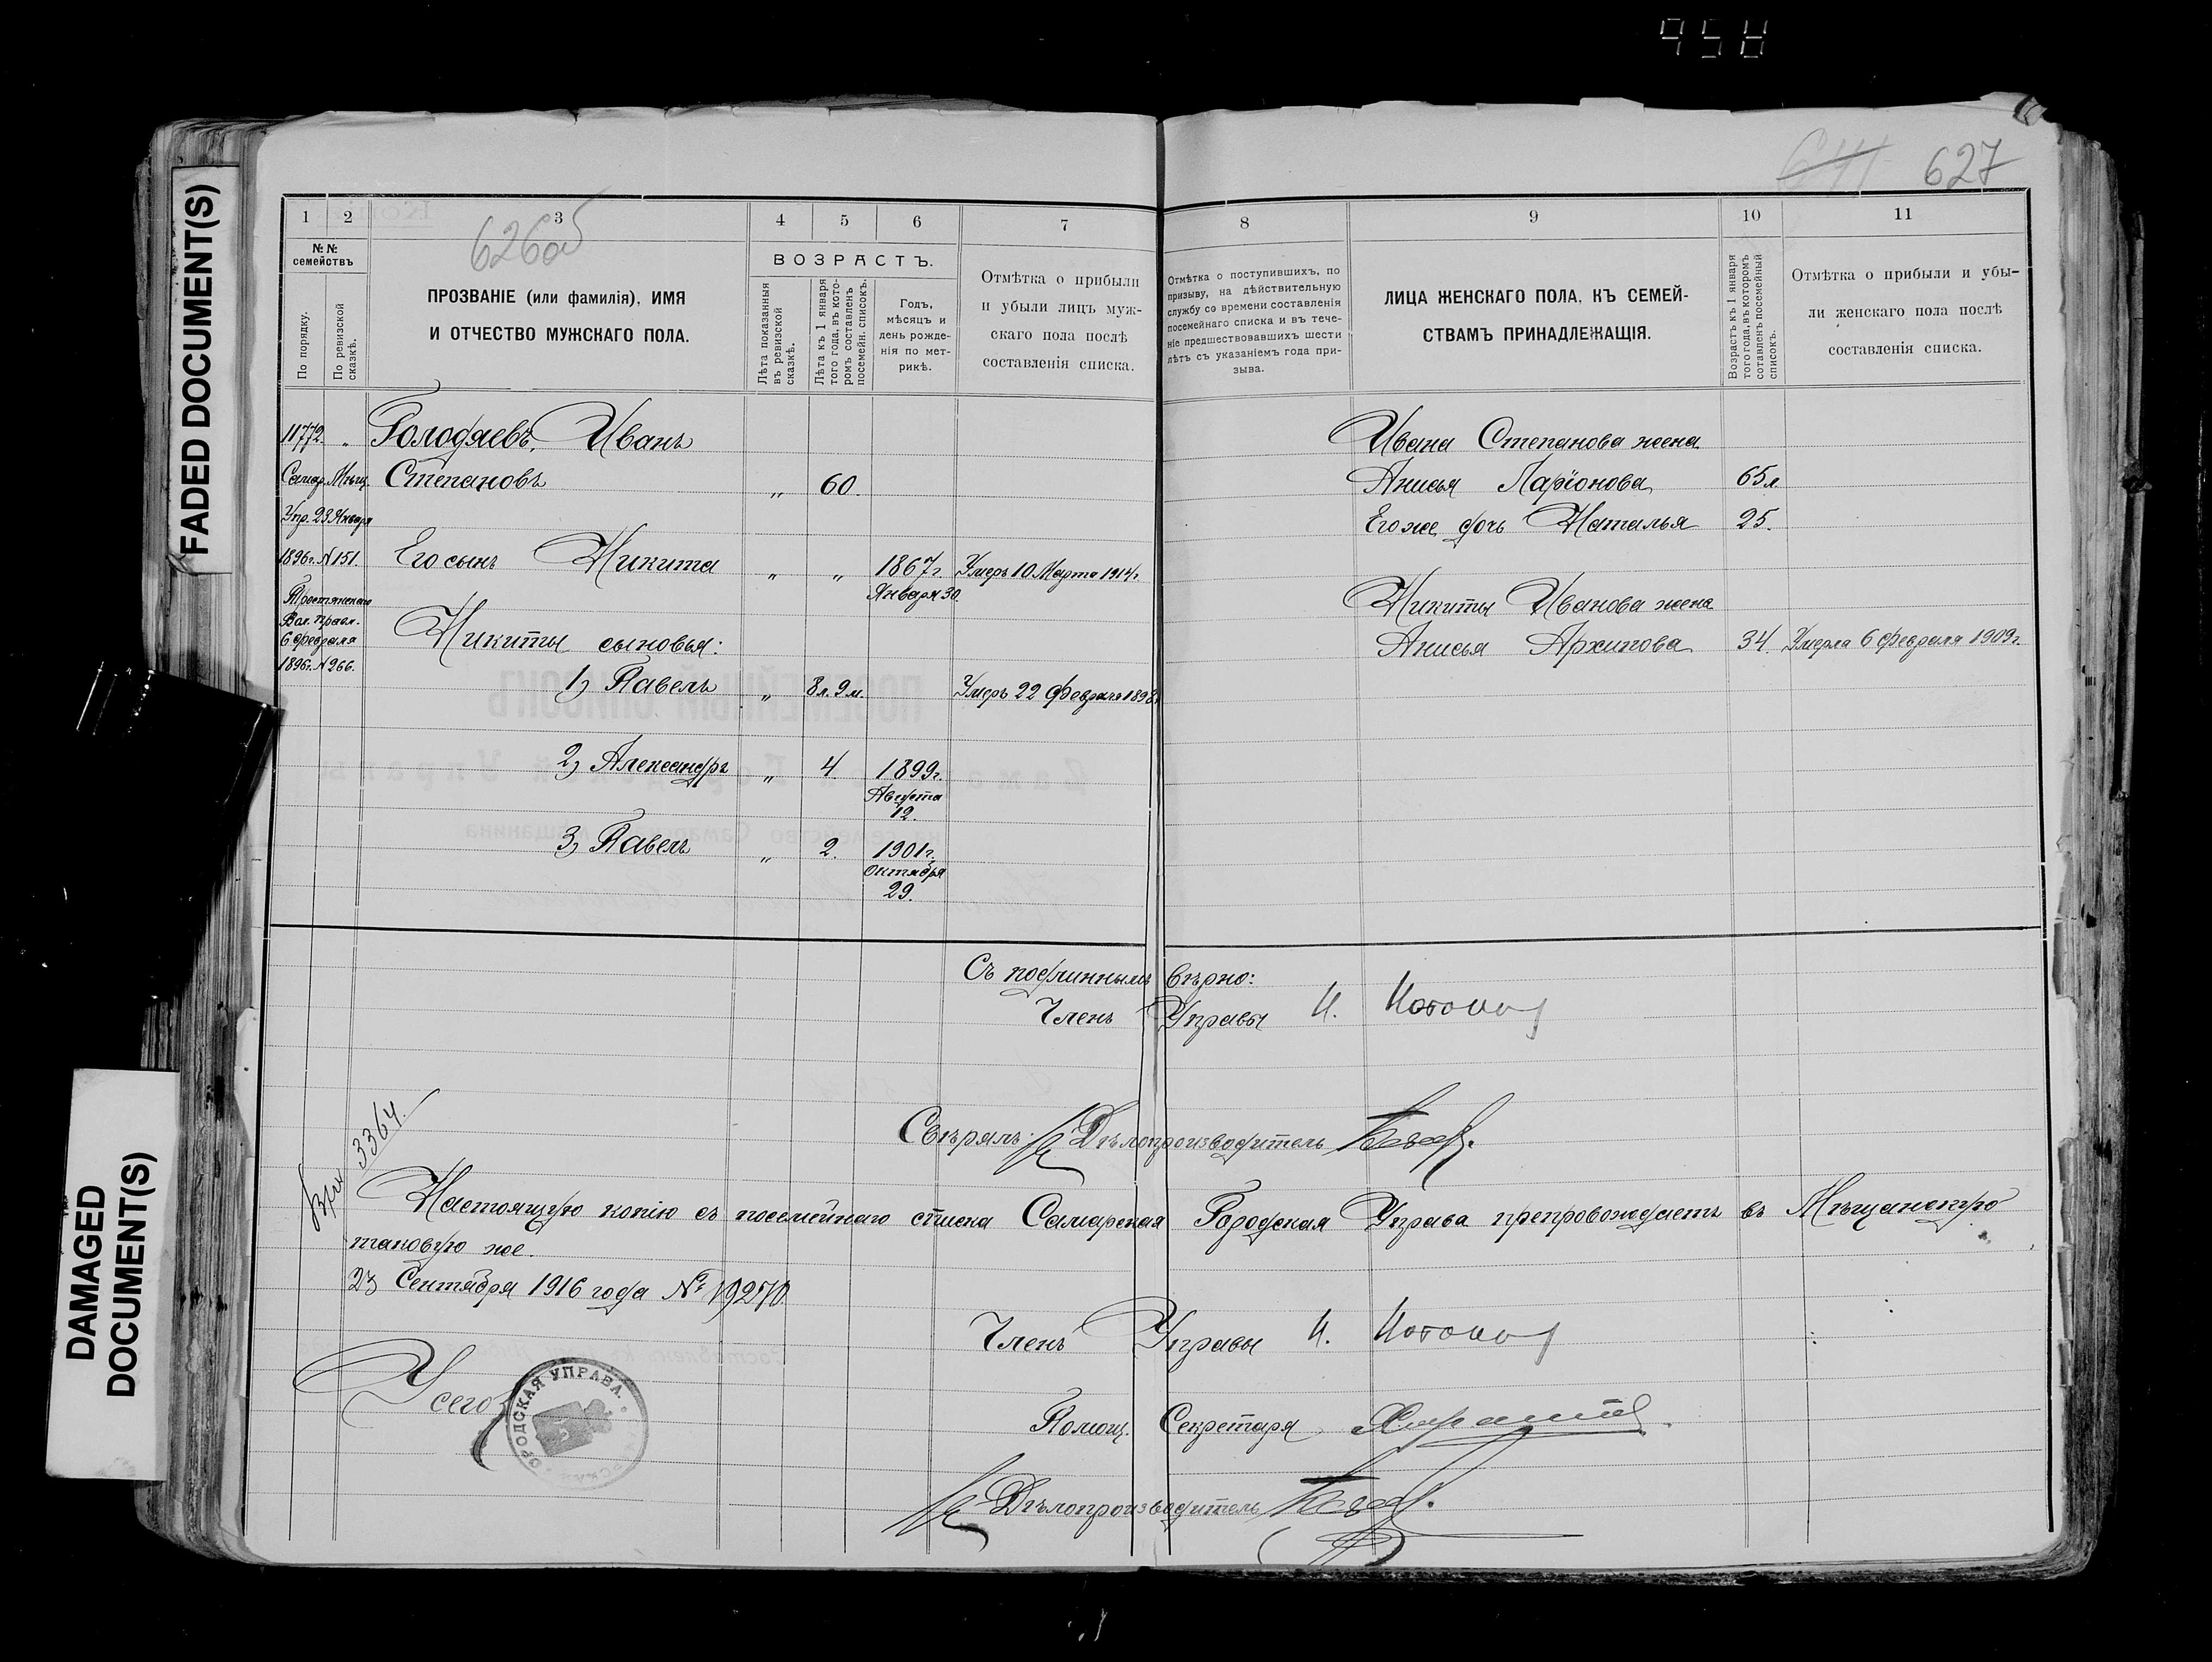 958
FADED DOCUMENT(S)
DAMAGED
DOCUMENT(S)
627
626об
1
2
3
4
5
6
7
№ №
семействъ
По порядку.
По ревизской
сказкѣ.
ПРОЗВАНІЕ (или фамилія), ИМЯ
И ОТЧЕСТВО МУЖСКАГО ПОЛА.
ВОЗРАСТЪ.
Лѣта показанныя
въ ревизской
сказкѣ.
Лѣта къ 1 января
того года, въ кото-
ромъ составленъ
посемейн. списокъ.
Годъ,
мѣсяцъ и
день рожде-
нія по мет-
рикѣ.
Отмѣтка о прибыли
и убыли лицъ муж-
скаго пола послѣ
составленія списка.
8
9
10
11
Отмѣтка о поступившихъ, по
призыву, на дѣйствительную
службу со времени составленія
посемейнаго списка и въ тече-
ніе предшествовавшихъ шести
лѣтъ съ указаніемъ года при-
зыва.
ЛИЦА ЖЕНСКАГО ПОЛА, КЪ СЕМЕЙ-
СТВАМЪ ПРИНАДЛЕЖАЩІЯ.
Возрастъ къ 1 января
того года, въ которомъ
составленъ посемейный
списокъ.
Отмѣтка о прибыли и убы-
ли женскаго пола послѣ
составленія списка.
11772. „ Голодяевъ, Иванъ
Самар. Мѣщ. Степановъ „ 60.
Упр. 23 Января
1896г. N 151. Его сынъ Никита „ „ 1867г. Умеръ 10 Марта 1914г.
Января 30.
Тростянскаго
Вол. Правл.
6 февраля Никиты сыновья:
1896г. N 266.
1) Павелъ „ 8л. 9м. Умеръ 22 Февраля 1898г.
2) Александръ „ 4. 1899г.
Августа
12.
3) Павелъ „ 2. 1901г.
Октября
29.
Ивана Степанова жена
Анисья Ларіонова 65л.
Его же дочь Наталья 25.
Никиты Иванова жена
Анисья Архипова 34. Умерла 6 февраля 1909г.
Съ подлиннымъ вѣрно:
Членъ Управы И.
Свѣрялъ: Дѣлопроизводитель
3364.
Настоящую копію съ посемейнаго списка Самарская Городская Управа препровождаетъ въ Мѣщанскую
таковую же.
23 Сентября 1916 года № 19270.
Членъ Управы И.
ГОРОДСКАЯ УПРАВА.
Помощ. Секретаря
Дѣлопроизводитель